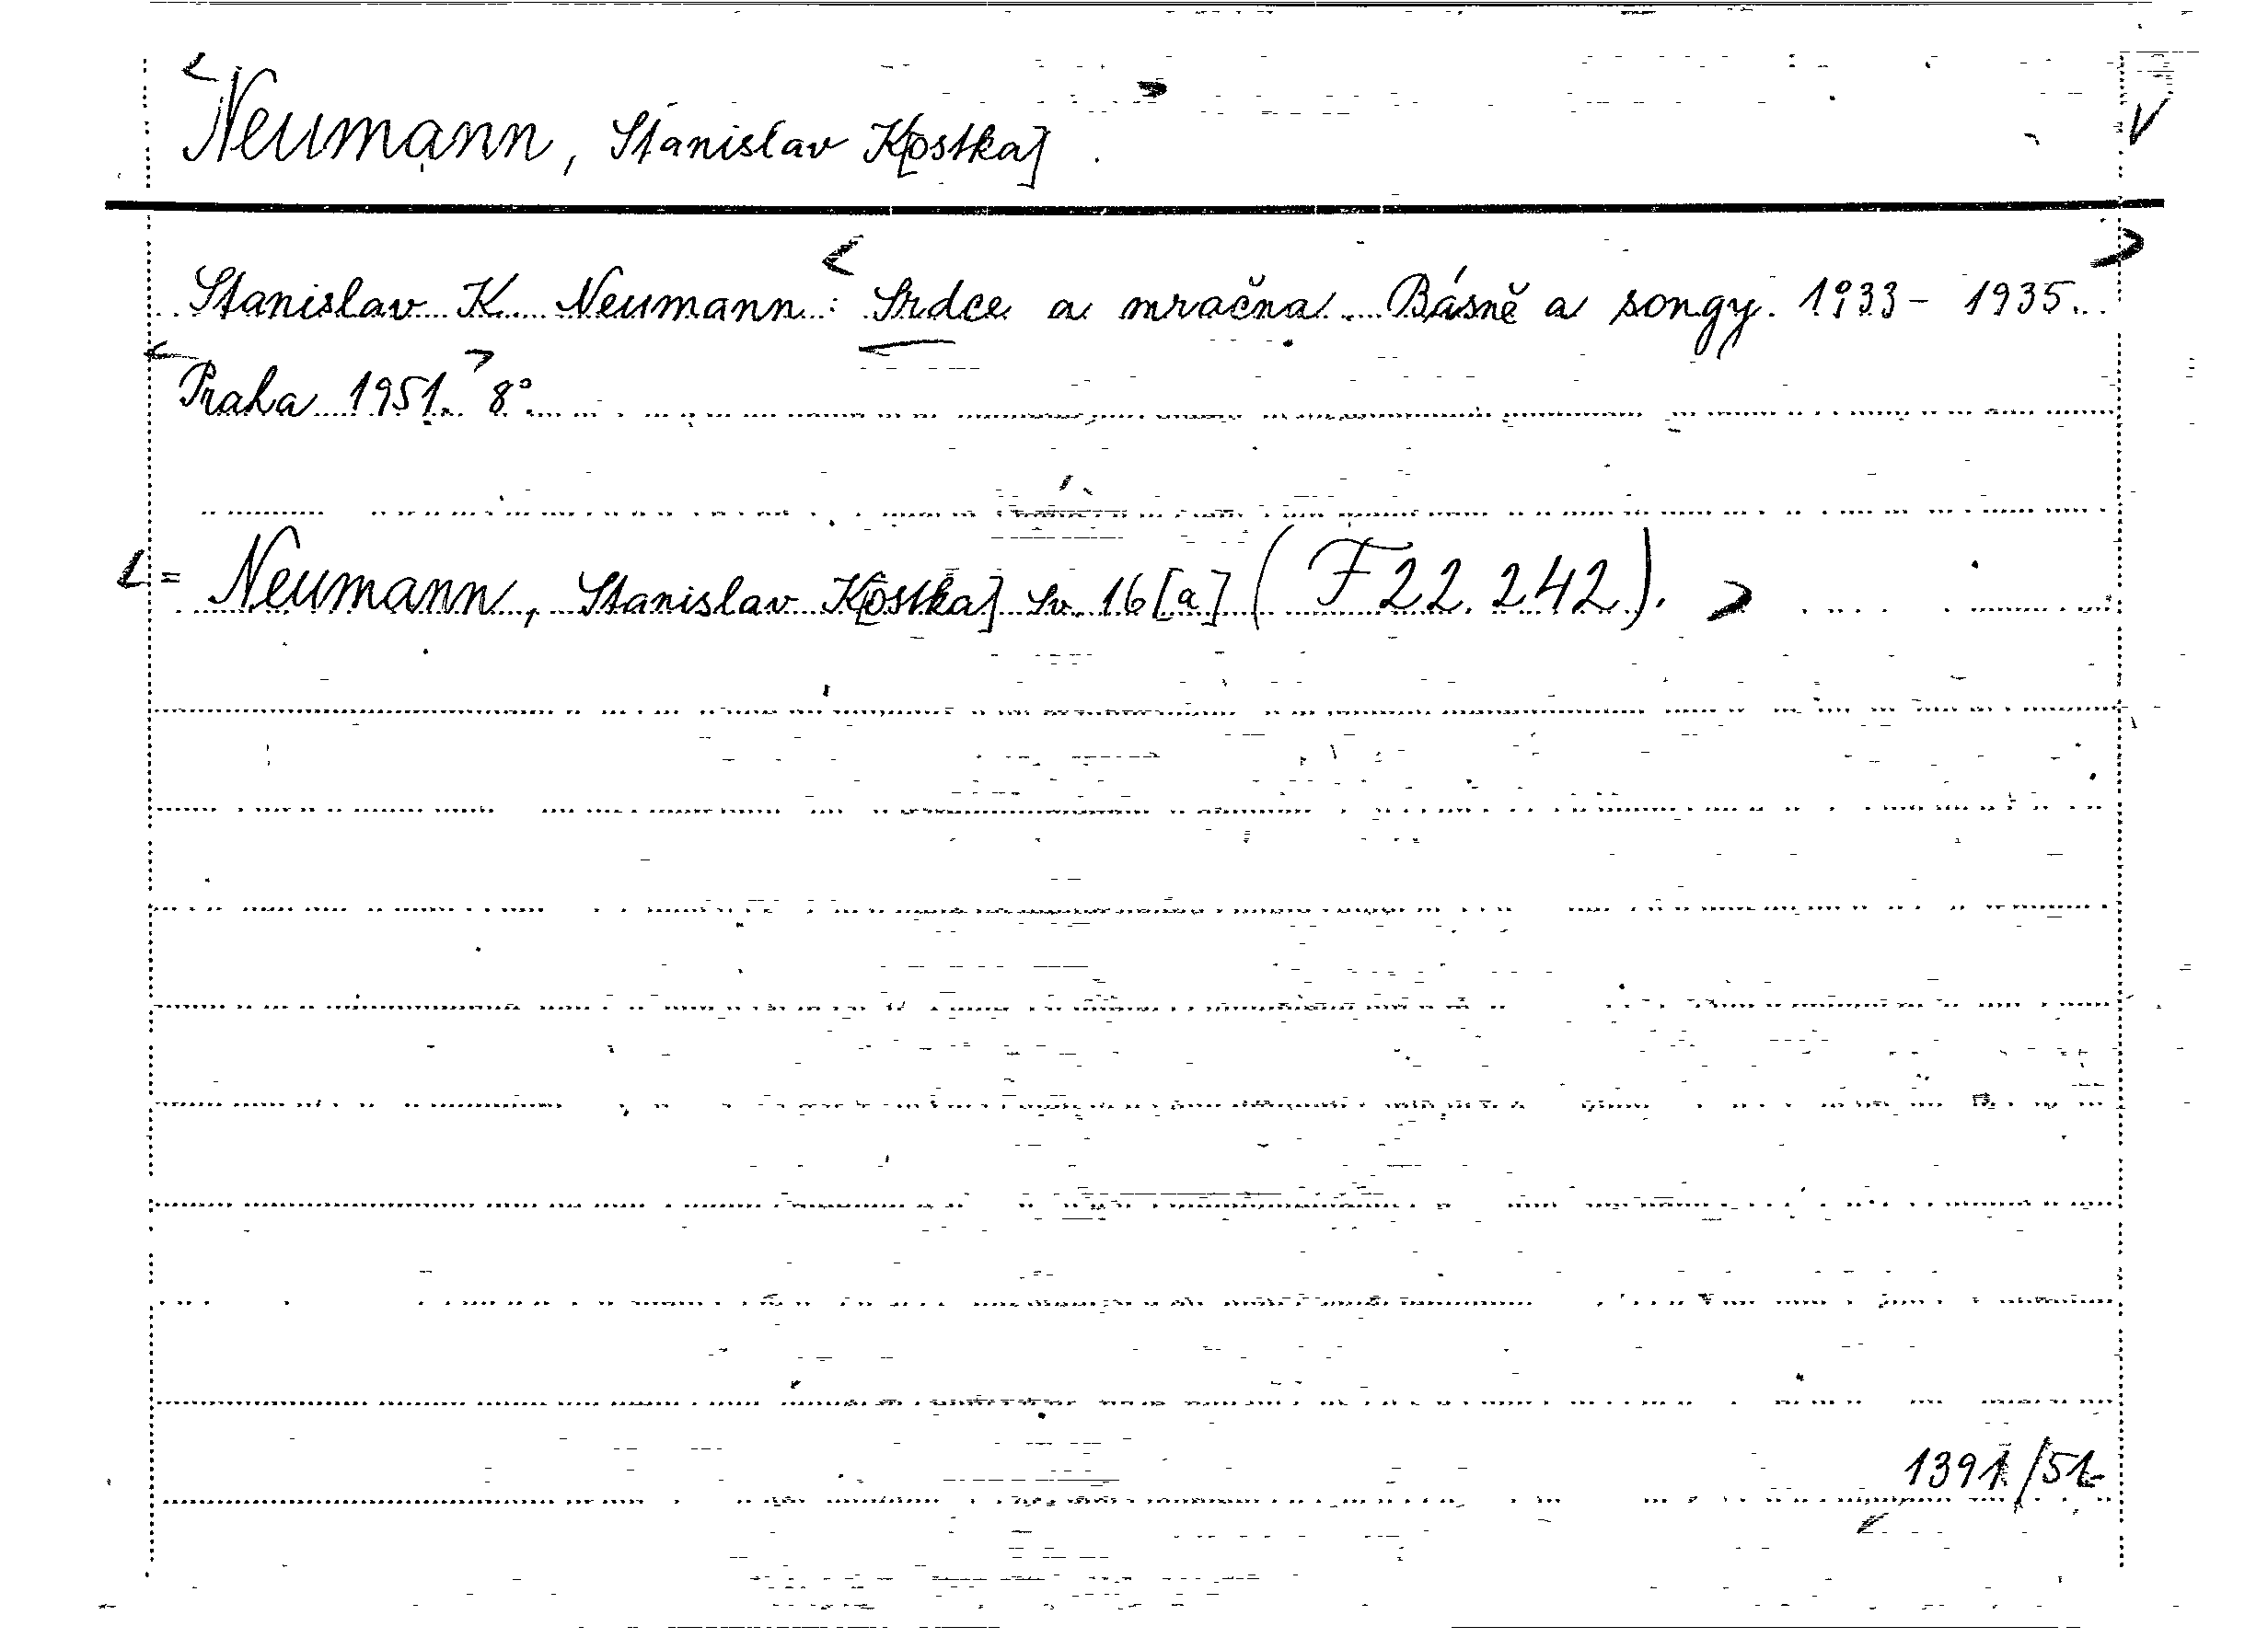 Neumann, Stanislav K[ostka] . V
Stanislav K. Neumann: Srdce a mračna. Básně a songy. 1933 - 1935.
Praha 1951. 8°
= Neumann, Stanislav K[ostka] Sv. 16[a] (F 22.242).
1391/51